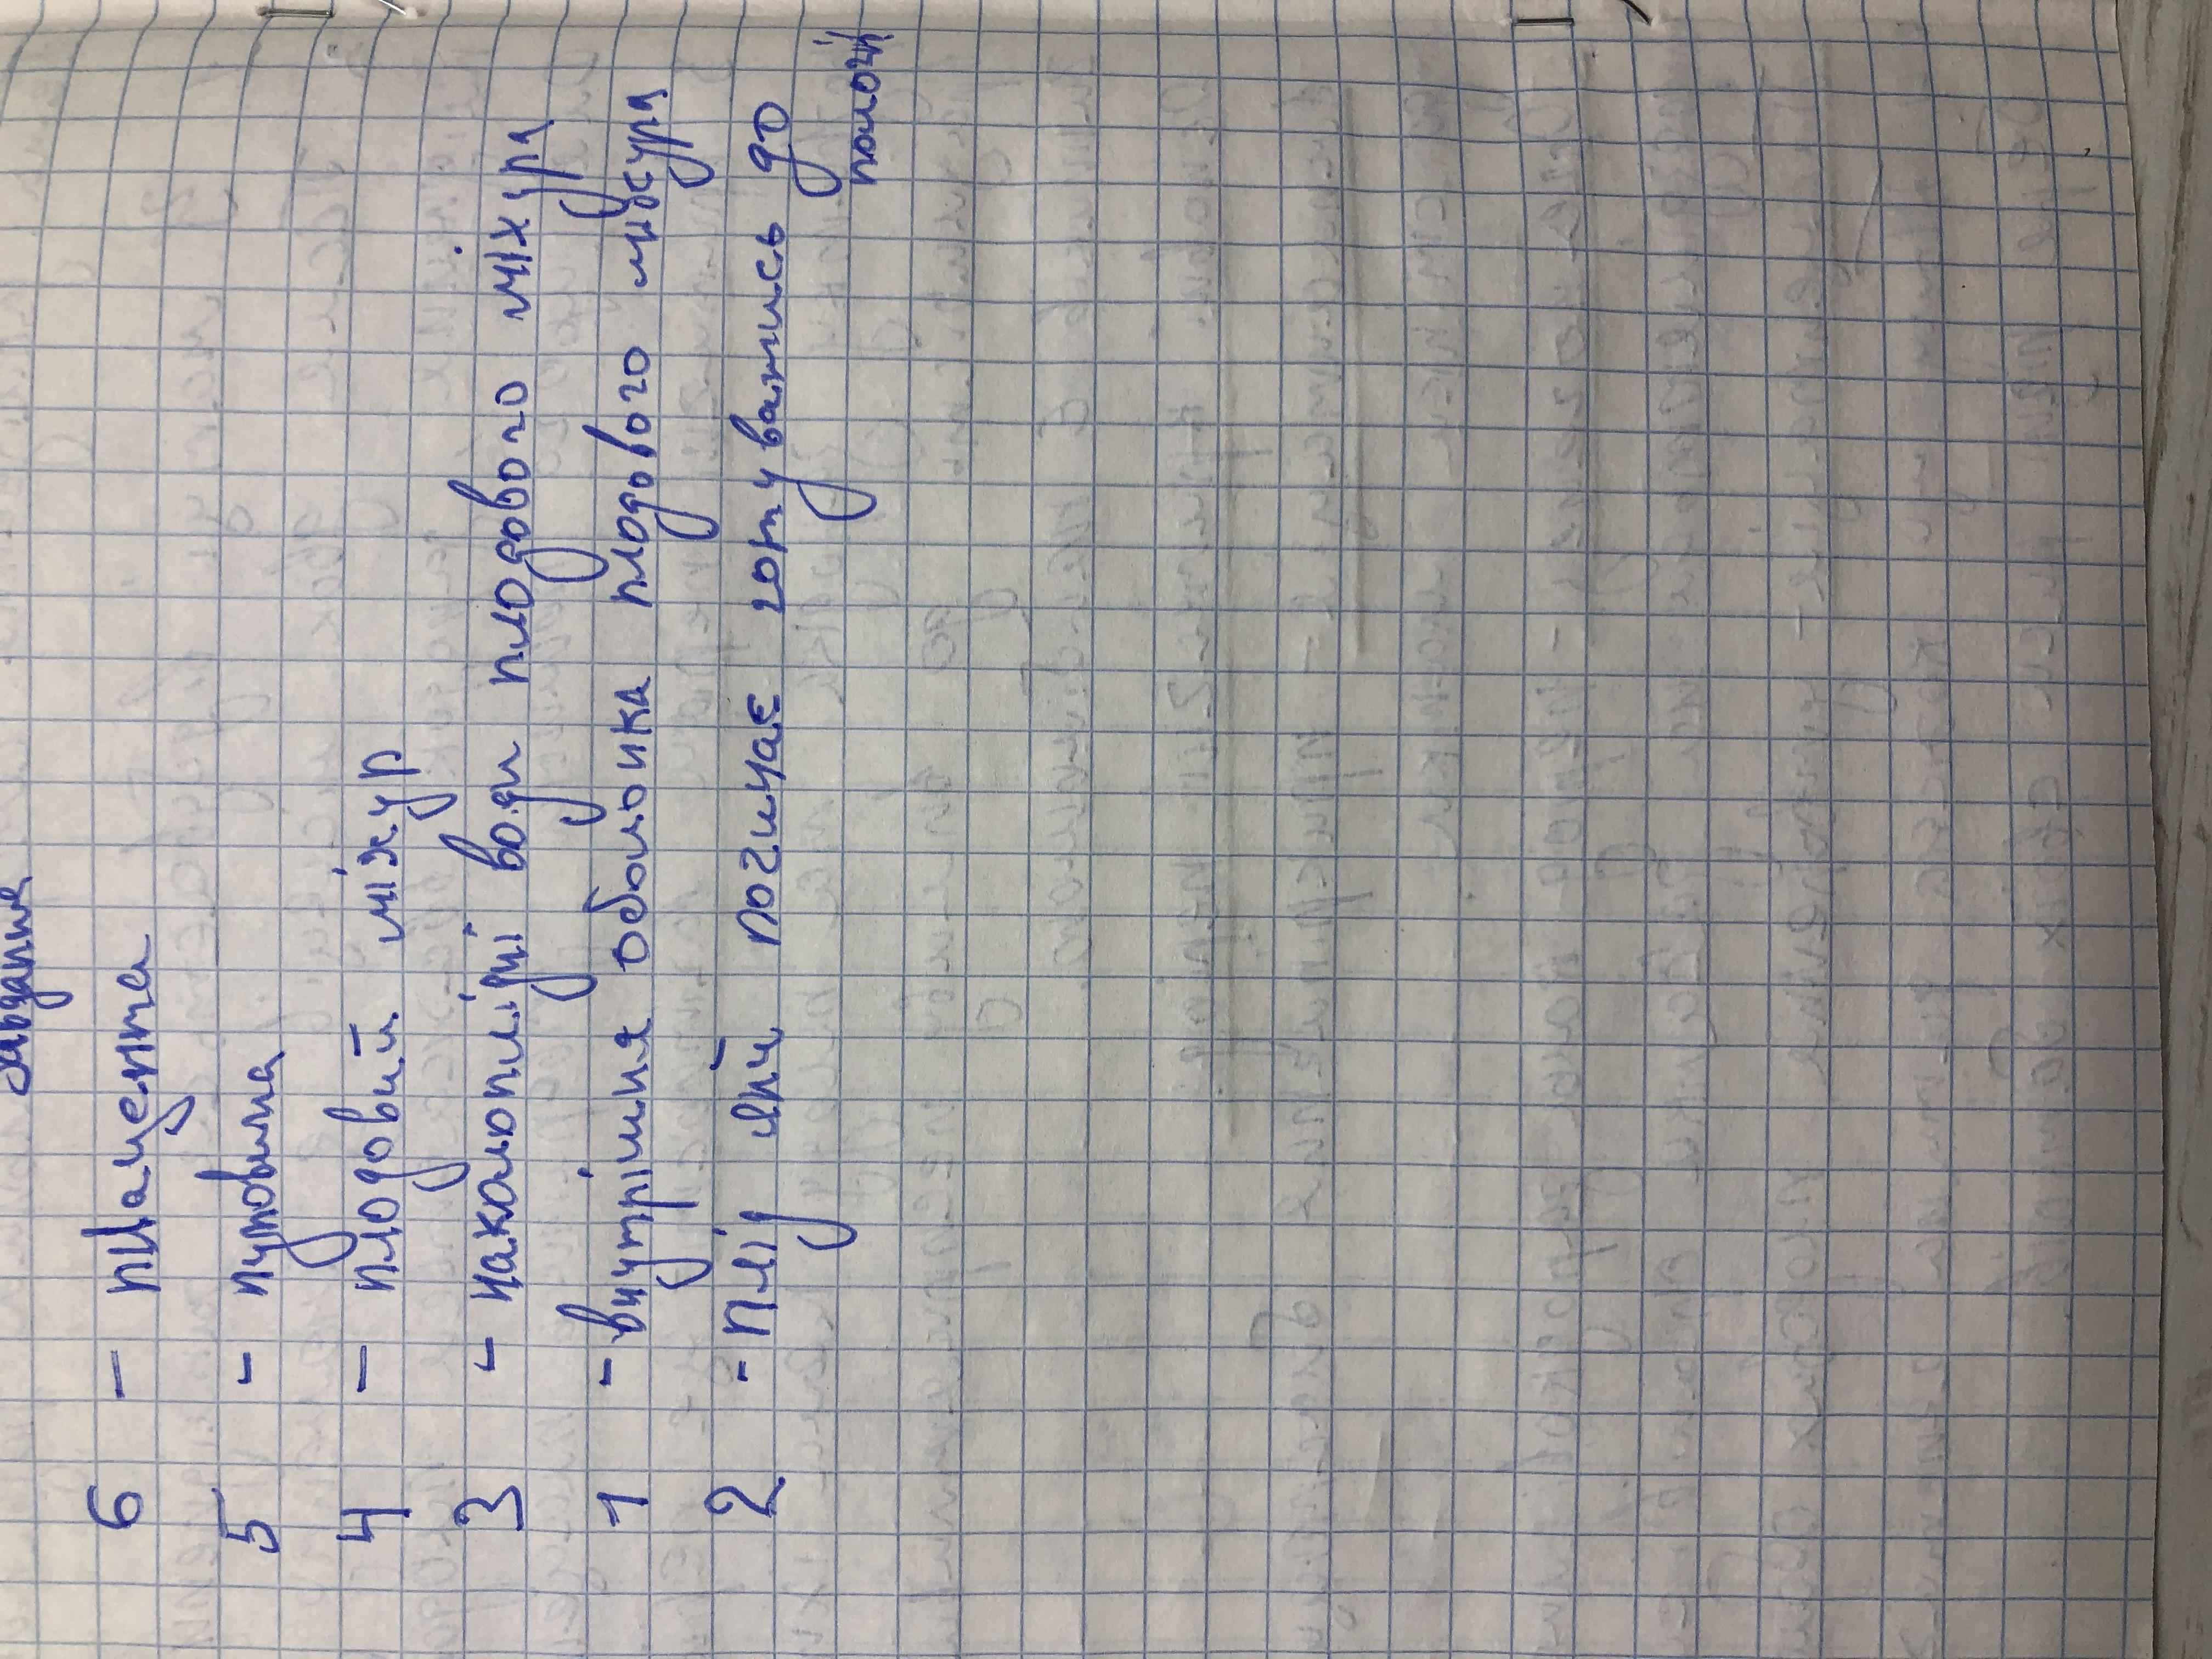 завдання
6 - плацента
5 - пуповина
4 - плодовий міхур
3 - наколоплідні води плодового міхура
1 - внутрішня оболонка плодового міхура
2 - Плід який починає готуватись до
пологів